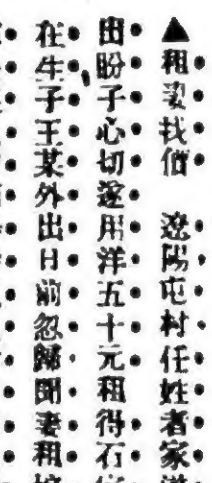 ▲租妻找價 遼陽屯村任姓者家
因盼子心切遂用洋五十元租得石
在生子王某外出日前忽歸聞妻租